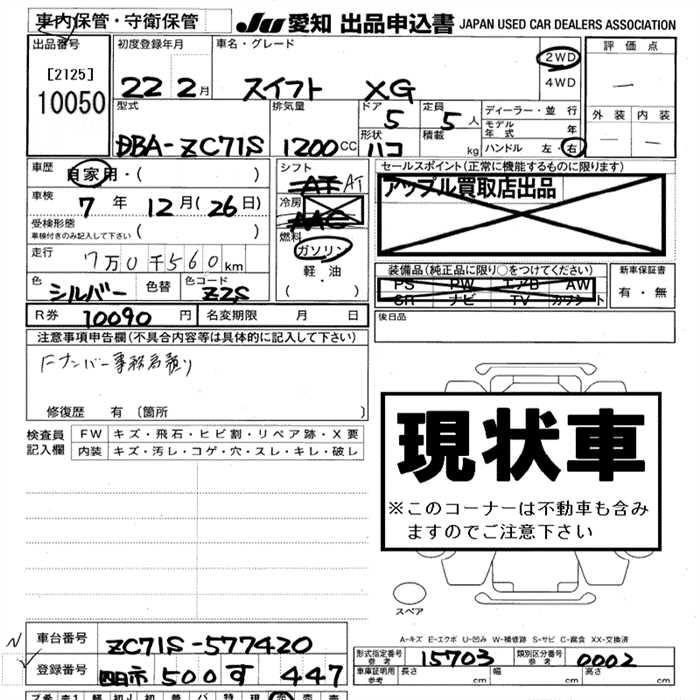 車内保管・守衛保管
JU 愛知 出品申込書 JAPAN USED CAR DEALERS ASSOCIATION
出品番号
[2125]
10050
初度登録年月
22 2月
車名・グレード
スイフト XG
2WD
4WD
評価点
外装 内装
型式
DBA-ZC71S
排気量
1200CC
ドア
5
形状
ハコ
定員
5人
積載
kg
ディーラー・並行
モデル年式 年
ハンドル 左・右
車歴
自家用・( )
車検
7年 12月(26日)
受検形態
車検付きのみ記入して下さい ( )
走行
7万0千560km
色
シルバー
色替
色コード
Z2S
シフト
AT AT
冷房
AAC
燃料
ガソリン
軽・油
( )
セールスポイント(正常に機能するものに限ります)
アップル買取店出品
装備品(純正品に限り○をつけてください)
PS PW エアB AW
SR ナビ TV カワシート
新車保証書
有・無
R券 10090円
名変期限 月 日
後日品
注意事項申告欄(不具合内容等は具体的に記入して下さい)
Fナンバー事務局預り
修復歴 有 〔箇所
検査員記入欄
FW キズ・飛石・ヒビ割・リペア跡・X要
内装 キズ・汚レ・コゲ・穴・スレ・キレ・破レ
現状車
※このコーナーは不動車も含み
ますのでご注意下さい
スペア
A-キズ E-エクボ U-凹み W-補修跡 S-サビ C-腐食 XX-交換済
車台番号 ZC71S-577420
登録番号 四日市 500 す 447
形式指定番号 参考 15703
類別区分番号 参考 0002
車庫証明用 参考 長さ cm 幅 cm 高さ cm